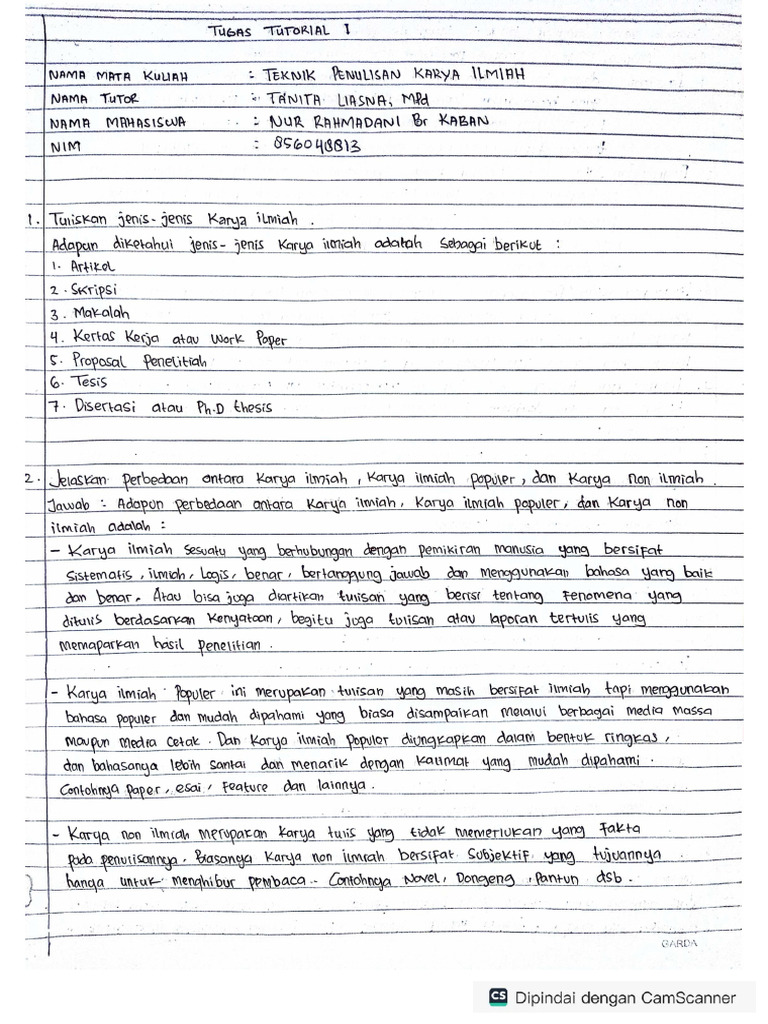 TUGAS TUTORIAL I
NAMA MATA KULIAH : TEKNIK PENULISAN KARYA ILMIAH
NAMA TUTOR : TANITA LIASNA, MPd
NAMA MAHASISWA : NUR RAHMADANI Br KABAN
NIM : 856048813
1. Tuliskan jenis-jenis Karya ilmiah.
Adapun diketahui jenis-jenis Karya ilmiah adalah sebagai berikut :
1. Artikel
2. Skripsi
3. Makalah
4. Kertas Kerja atau Work Paper
5. Proposal Penelitiah
6. Tesis
7. Disertasi atau Ph.D thesis
2. Jelaskan perbedaan antara Karya ilmiah, Karya ilmiah populer, dan Karya non ilmiah.
Jawab : Adapun perbedaan antara Karya ilmiah, Karya ilmiah populer, dan Karya non
ilmiah adalah :
- Karya ilmiah sesuatu yang berhubungan dengan pemikiran manusia yang bersifat
Sistematis, ilmiah, Logis, benar, bertanggung jawab dan menggunakan bahasa yang baik
dan benar. Atau bisa juga diartikan tulisan yang berisi tentang Fenomena yang
ditulis berdasarkan Kenyataan, begitu juga tulisan atau laporan tertulis yang
memaparkan hasil penelitian.
- Karya ilmiah Populer ini merupakan tulisan yang masih bersifat ilmiah tapi menggunakan
bahasa populer dan mudah dipahami yang biasa disampaikan melalui berbagai media massa
maupun media cetak. Dan Karya ilmiah Populer diungkapkan dalam bentuk ringkas,
dan bahasanya lebih santai dan menarik dengan kalimat yang mudah dipahami.
Contohnya paper, esai, Feature dan lainnya.
- Karya non ilmiah merupakan karya tulis yang tidak memerlukan yang Fakta
pada penulisannya, Biasanya Karya non ilmiah bersifat Subjektif yang tujuannya
hanya untuk menghibur pembaca. Contohnya Novel, Dongeng, Pantun dsb.
GARDA
CS Dipindai dengan CamScanner